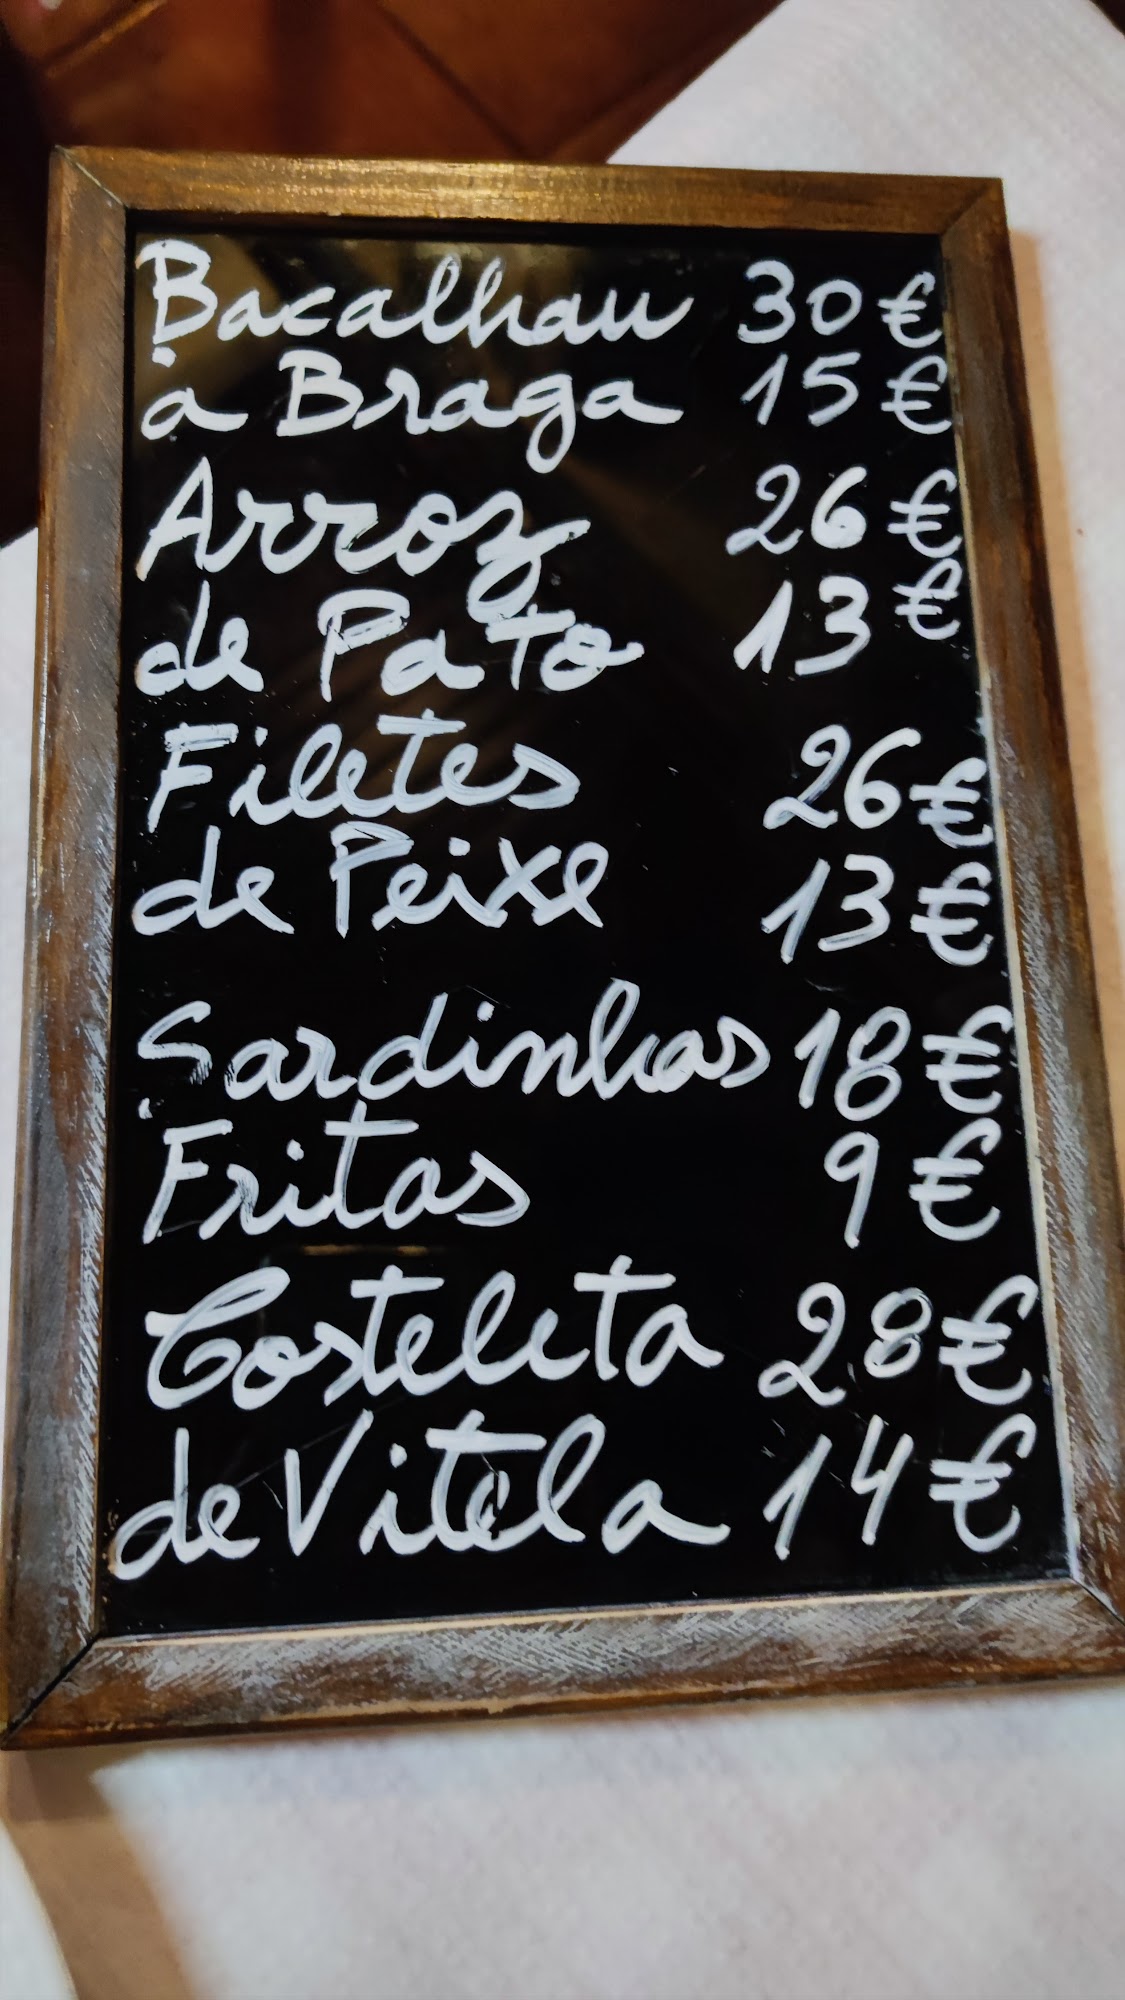 Bacalhau 30 €
a Braga 15 €
Arroz 26 €
de Pato 13 €
Filetes 26 €
de Peixe 13 €
Sardinhas 18 €
Fritas 9 €
Costeleta 28 €
de Vitela 14 €